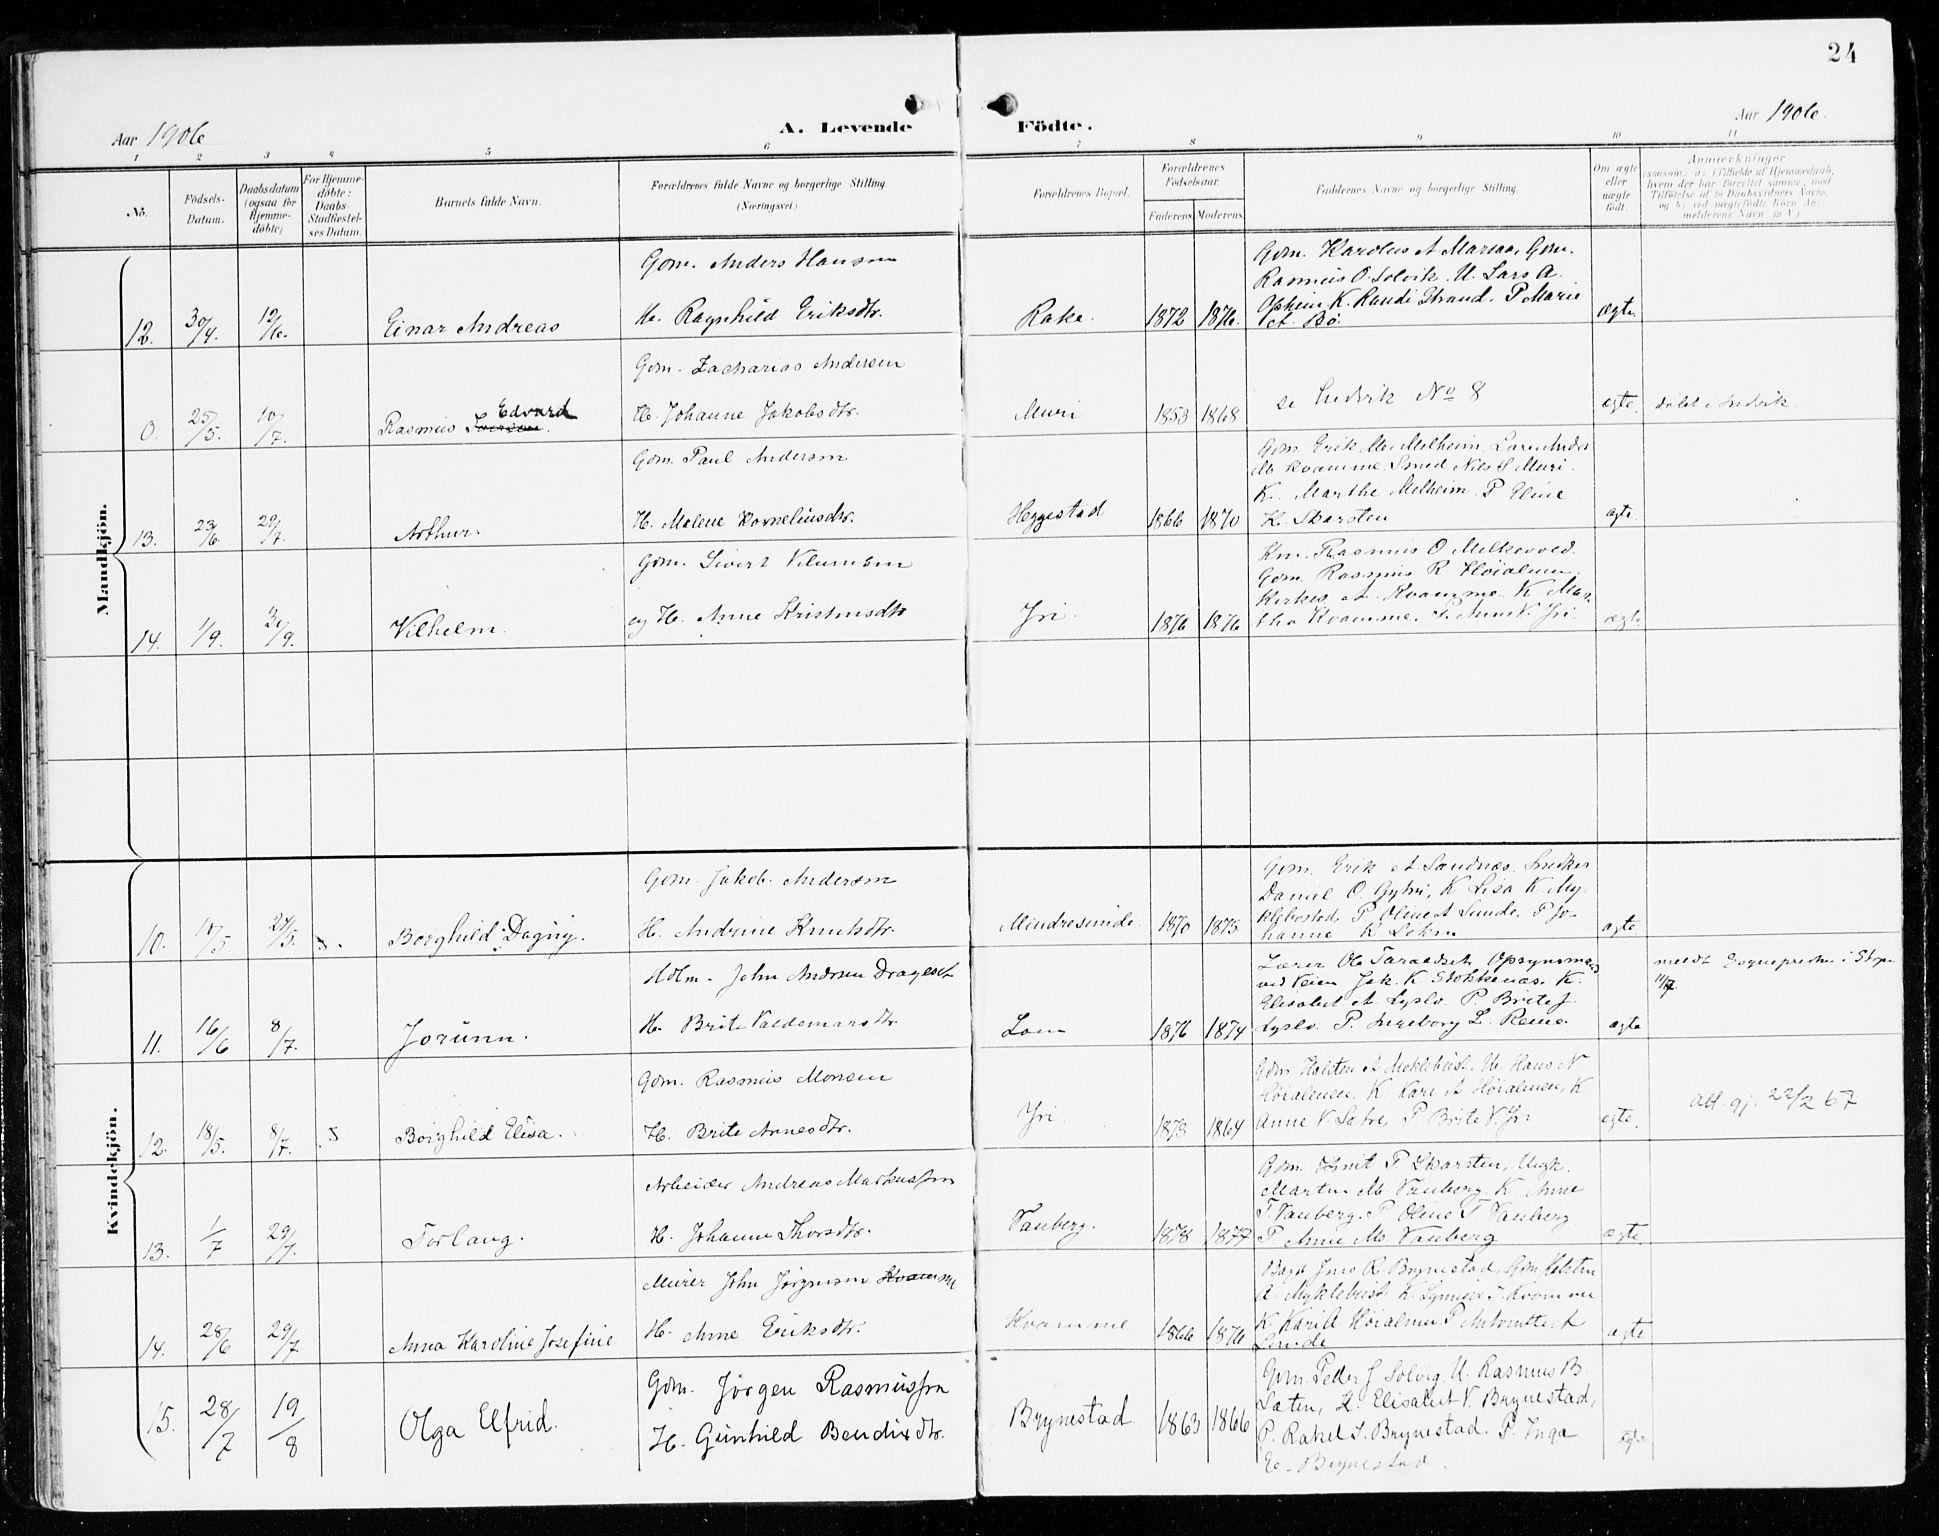 24
Aar 1906
A. Levende
Födte.
Aar 1906.
1 2 3 4 5 6 7 8 9 10 11
No.
Födsels-
Datum.
Daabsdatum
(ogsaa for
Hjemme-
döbte)
For Hjemme-
döbte:
Daabs-
Stadfæstel-
ses Datum.
Barnets fulde Navn.
Forældrenes fulde Navne og borgerlige Stilling
(Næringsvei)
Forældrenes Bopæl.
Forældrenes
Födselsaar.
Faderens. Moderens.
Faddernes Navne og borgerlige Stilling.
Om ægte
eller
uægte
födt.
Anmærkninger
(saasom: a) i Tilfælde af Hjemmedaab,
hvem der har forrettet samme, med
Tilföielse af to Daabsvidners Navne,
og b) ved uægtefödte Börn An-
melderens Navn m. V.)
Mandkjön.
12. 30/4. 12/6. Einar Andreas
Gdm. Anders Hansen
H. Ragnhild Eriksdtr.
Rake. 1872 1876.
Gdm. Karolus A Gdm.
Rasmus O. Solvik. U. Lars A.
Opheim. K. Randi Strand. P. Marie
A. Bö.
ægte.
0. 25/5. 10/7. Rasmus Edvard
Gdm. Zacharias Andersen
H. Johanne Jakobsdtr.
Muri 1853 1868
se Indvik No 8
ægte. döbt i Indvik.
13. 23/6. 29/7. Arthur.
Gdm. Paul Andersen
H. Malene Korneliusdtr.
Heggestad 1866 1870
Gdm. Erik M. Melheim.
M. Kvamme. Smed Nils S. Muri.
K. Marthe Melheim. P. Eline
K. Skarsten
ægte.
14. 1/9. /9. Vilhelm.
Gdm. Sivert Vilumsen
og H. Anne Kristensdtr
Yri. 1876 1876
Rasmus O. Melkevold.
Gdm. Rasmus R. Höialmen.
A. Kvamme. K. Mar-
tha Kvamme. P. Anne V. Yri.
ægte
Kvindekjön.
10. 17/5 24/5. Borghild Dagny.
Gdm. Jakob Andersen
H. Andrine Knutsdtr.
Mindresunde. 1870 1875.
Gdm. Erik A. Sandnes. Snedker
Daniel O Gytri, K. Lisa K. My-
klebostad P. Oline A Sunde. P. Jo-
hanne K. Loken
ægte
11. 16/6 8/7. Jorunn.
Hdlm. John Andreas Drageset
H. Brite Valdemarsdtr.
Loen 1876 1874
Lærer Ole Taraldset. Opsynsmand
ved Veien Jak. K. Stokkenæs. K.
Elisabet A. Lyslo. P. Brite J.
Lyslo. P. Ingeborg L. Reme.
ægte
meldt Sognepresten i Stryn
12. 18/5. 8/7. Borghild Elisa.
Gdm. Rasmus Monsen
H. Brite Arnesdtr.
Yri. 1873 1864
Gdm. Halsten A Myklebust. U. Hans N
Höialmen, K. Kari A Höialmen, K
Anne V. Sætre, P. Brite V. Yri
ægte.
att. gj. 22/2 67
13. 1/7 29/7. Torlaug.
Arbeider Andreas Markussen
H. Johanne Thorsdtr.
Vanberg. 1878 1877
Gdm. Knut P. Skarsten, Ungk.
Martin M. Vanberg. K. Anne
T. Vanberg. P. Oline T. Vanberg
P. Anne M. Vanberg
ægte.
14. 28/6 29/7 Anna Karoline Josefine
Murer John Jörgensen Kvamme
H. Anne Eriksdtr.
Kvamme 1866 1876
Jens R. Brynestad, Gdm Halsten
A. Myklebust K. J. Kvamme
K. Kari A Höialmen P. Antonette A
Sunde
ægte
15. 28/7 19/8 Olga Elfrid.
Gdm. Jörgen Rasmussen
H. Gunhild Bendixdtr.
Brynestad 1863 1866
Gdm. Peder J. Solvig. U. Rasmus B.
Sæten, K. Elisabet V. Brynestad,
P. Rakel S. Brynestad. P. Inga
E. Brynestad.
ægte